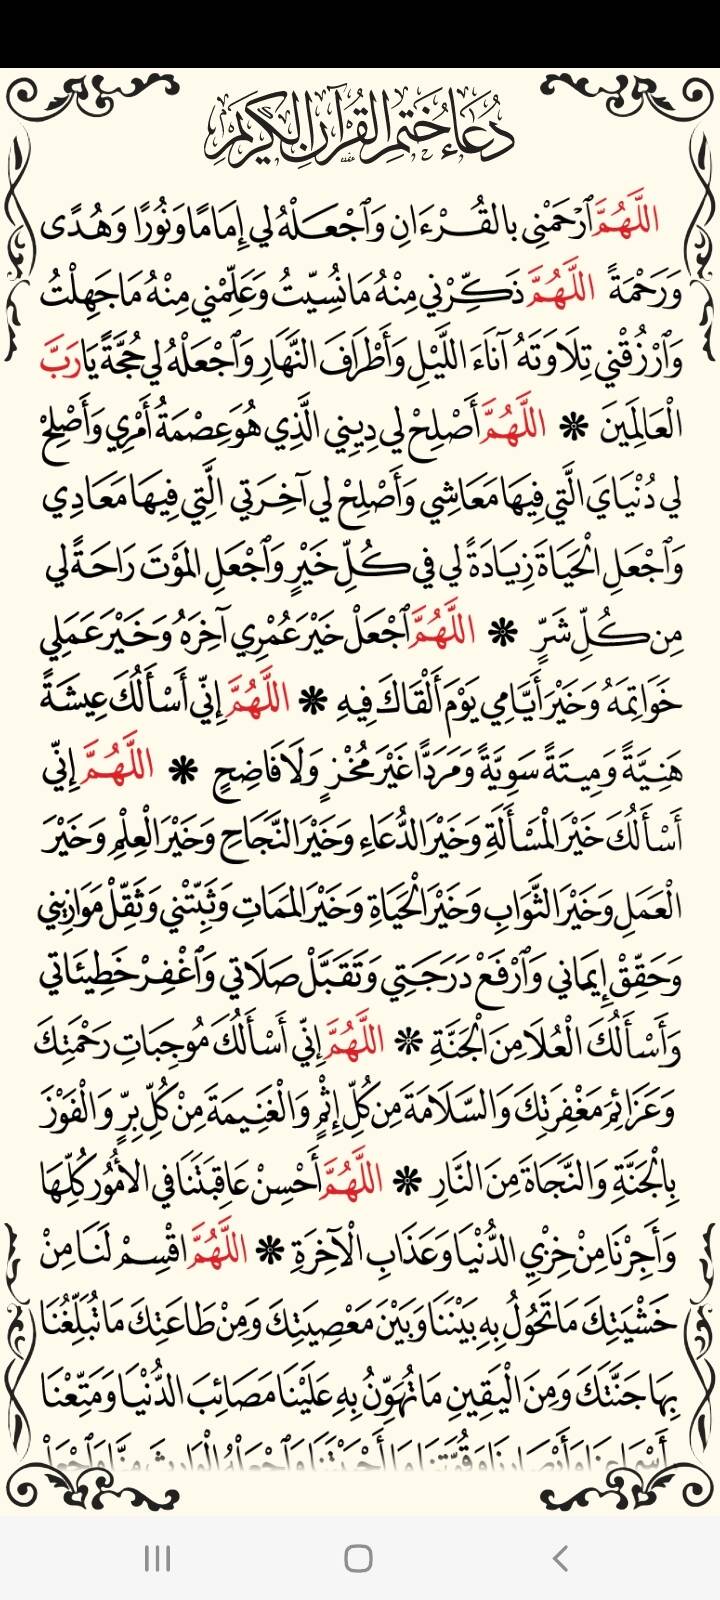 دُعَاءُ خَتْمِ القُرْآنِ الكَرِيمِ
اللَّهُمَّ ٱرْحَمْنِي بِالقُرْءَانِ وَٱجْعَلْهُ لِي إِمَامًا وَنُورًا وَهُدًى
وَرَحْمَةً اللَّهُمَّ ذَكِّرْنِي مِنْهُ مَا نُسِّيتُ وَعَلِّمْنِي مِنْهُ مَا جَهِلْتُ
وَٱرْزُقْنِي تِلَاوَتَهُ آنَاءَ اللَّيْلِ وَأَطْرَافَ النَّهَارِ وَٱجْعَلْهُ لِي حُجَّةً يَا رَبَّ
الْعَالَمِينَ ❋ اللَّهُمَّ أَصْلِحْ لِي دِينِي الَّذِي هُوَ عِصْمَةُ أَمْرِي وَأَصْلِحْ
لِي دُنْيَايَ الَّتِي فِيهَا مَعَاشِي وَأَصْلِحْ لِي آخِرَتِي الَّتِي فِيهَا مَعَادِي
وَٱجْعَلِ الْحَيَاةَ زِيَادَةً لِي فِي كُلِّ خَيْرٍ وَٱجْعَلِ المَوْتَ رَاحَةً لِي
مِن كُلِّ شَرٍّ ❋ اللَّهُمَّ ٱجْعَلْ خَيْرَ عُمْرِي آخِرَهُ وَخَيْرَ عَمَلِي
خَوَاتِمَهُ وَخَيْرَ أَيَّامِي يَوْمَ أَلْقَاكَ فِيهِ ❋ اللَّهُمَّ إِنِّي أَسْأَلُكَ عِيشَةً
هَنِيَّةً وَمِيتَةً سَوِيَّةً وَمَرَدًّا غَيْرَ مُخْزٍ وَلَا فَاضِحٍ ❋ اللَّهُمَّ إِنِّي
أَسْأَلُكَ خَيْرَ الْمَسْأَلَةِ وَخَيْرَ الدُّعَاءِ وَخَيْرَ النَّجَاحِ وَخَيْرَ الْعِلْمِ وَخَيْرَ
الْعَمَلِ وَخَيْرَ الثَّوَابِ وَخَيْرَ الْحَيَاةِ وَخَيْرَ المَمَاتِ وَثَبِّتْنِي وَثَقِّلْ مَوَازِينِي
وَحَقِّقْ إِيمَانِي وَٱرْفَعْ دَرَجَتِي وَتَقَبَّلْ صَلَاتِي وَٱغْفِرْ خَطِيئَاتِي
وَأَسْأَلُكَ الْعُلَا مِنَ الْجَنَّةِ ❋ اللَّهُمَّ إِنِّي أَسْأَلُكَ مُوجِبَاتِ رَحْمَتِكَ
وَعَزَائِمَ مَغْفِرَتِكَ وَالسَّلَامَةَ مِن كُلِّ إِثْمٍ وَالْغَنِيمَةَ مِنْ كُلِّ بِرٍّ وَالْفَوْزَ
بِالْجَنَّةِ وَالنَّجَاةَ مِنَ النَّارِ ❋ اللَّهُمَّ أَحْسِنْ عَاقِبَتَنَا فِي الأُمُورِ كُلِّهَا
وَأَجِرْنَا مِنْ خِزْيِ الدُّنْيَا وَعَذَابِ الْآخِرَةِ ❋ اللَّهُمَّ اقْسِمْ لَنَا مِنْ
خَشْيَتِكَ مَا تَحُولُ بِهِ بَيْنَنَا وَبَيْنَ مَعْصِيَتِكَ وَمِنْ طَاعَتِكَ مَا تُبَلِّغُنَا
بِهَا جَنَّتَكَ وَمِنَ الْيَقِينِ مَا تُهَوِّنُ بِهِ عَلَيْنَا مَصَائِبَ الدُّنْيَا وَمَتِّعْنَا
أَسْمَاعِنَا وَأَبْصَارِنَا وَقُوَّتِنَا مَا أَحْيَيْتَنَا وَٱجْعَلْهُ الْوَارِثَ مِنَّا وَٱجْعَلْ